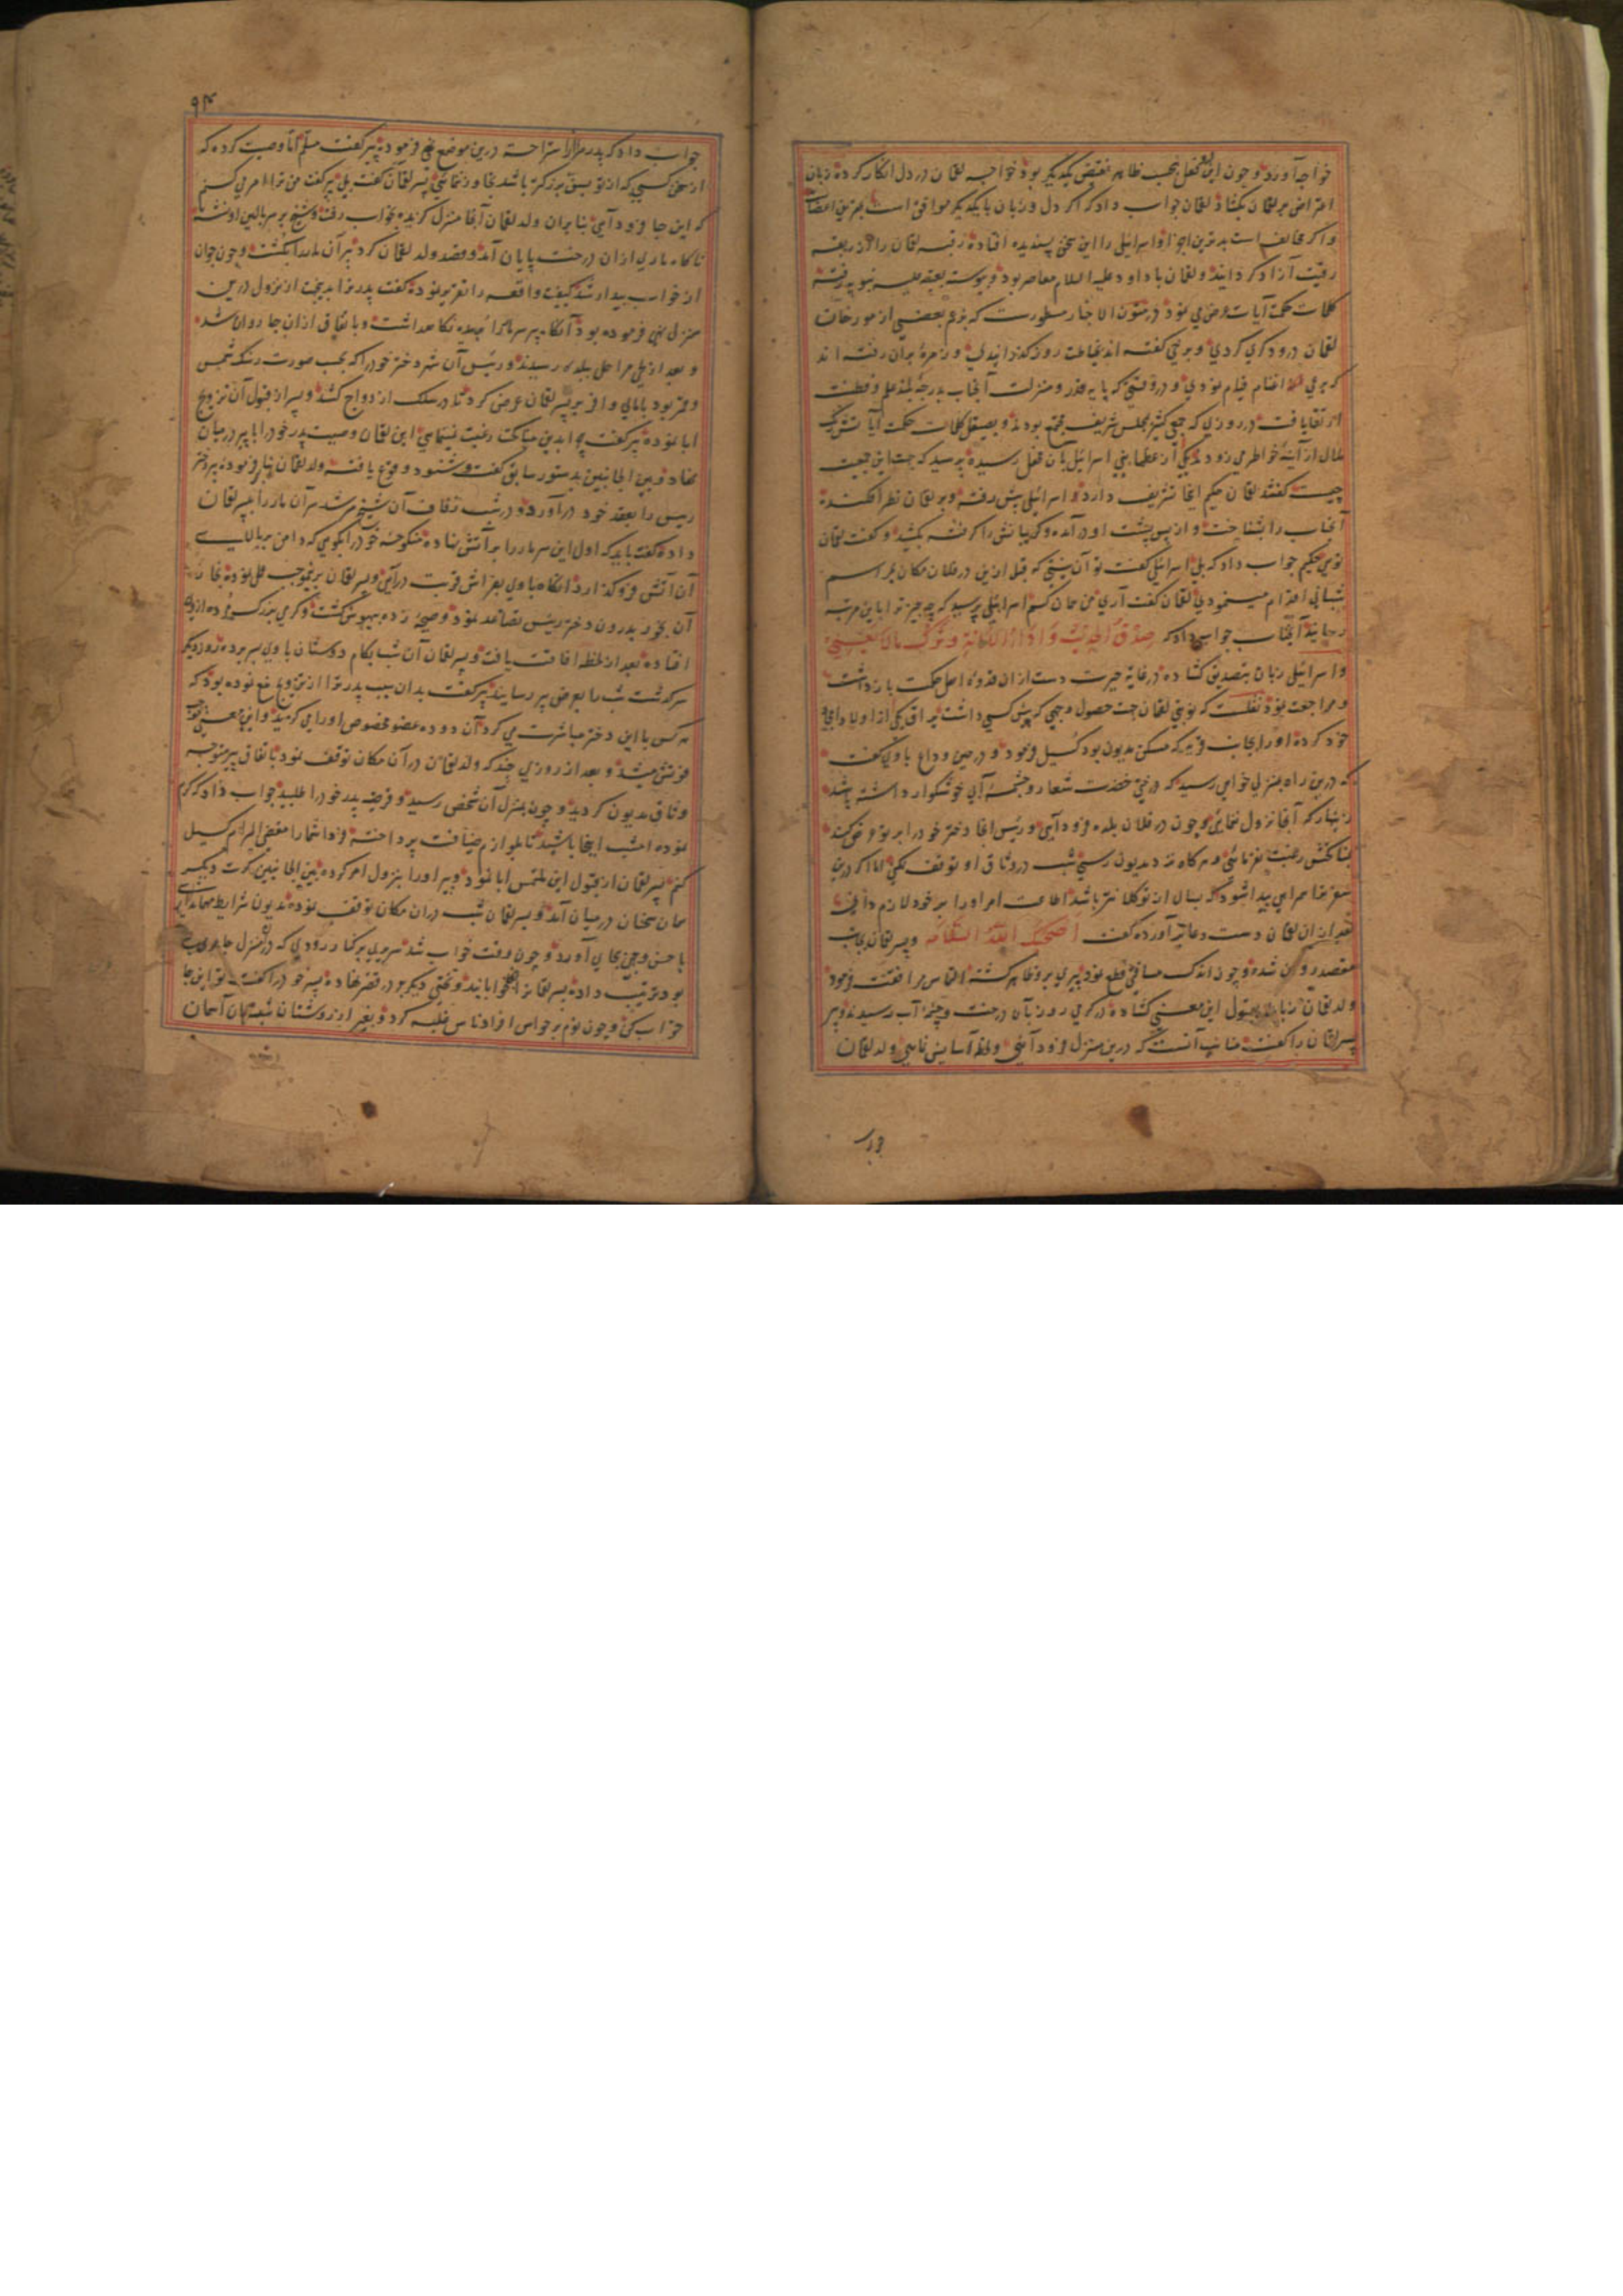 خواجه آورد و چون این فعل بحسب ظاهر نقیض یکدیگر بود خواجه لقمان در دل انکار کرده زبان
اعتراض بر لقمان بکشاد لقمان جواب داد که اگر دل و زبان با یکدیگر موافق است بهترین اعضاست
و اگر مخالف است بدترین اجزا و اسرائیلی را این سخن پسندیده افتاده رقبه لقمان را از ربقه
رقیت آزاد کردانید و لقمان با داود علیه السلام معاصر بود و پیوسته
کلمات حکمت آیات عرض می نمود در متون الاخبار مسطورست که بزعم بعضی از مورخان
لقمان درودکری کردی و برخی گفته اند بخیاطت روز گذرانیدی و زمره بران رفته اند
که برعی اغنام قیام نمودی و در وقتی که پایه قدر و منزلت آنجناب بدرجه بلند علم و فطنت
ارتقا یافت در روزی که جمعی کثیر بمجلس شریف مجتمع بودند و بصیقل کلمات حکمت آیاتش زنگ
ملال از آینه خواطر می زدود یکی از عظماء بنی اسرائیل بآن محفل رسیده پرسید که جهت این جمعیت
چیست گفتند لقمان حکیم اینجا تشریف دارد و اسرائیلی پیش رفته و بر لقمان نظر افکنده
آنجناب را شناخت و از پس پشت او درآمده و گریبانش را گرفته بکشید و گفت لقمان
تویی حکیم جواب داد که بلی اسرائیلی گفت تو آن نیستی که قبل ازین در فلان مکان بمراسم
شبانی اقدام مینمودی لقمان گفت آری من همان کسم اسرائیلی پرسید که چه چیز ترا باین مرتبه
رسانید آنجناب جواب داد که صدق الحدیث و اداء الامانة و ترک مالا یعنینی
و اسرائیلی زبان بتصدیق کشاده در غایة حیرت دست از ان قدوه اهل حکمت بازداشت
و مراجعت نمود نقلست که نوبتی لقمان جهت حصول وجهی که پیش کسی داشت یراق یکی از اولاد امجاد
خود کرده او را بجانب قریه که مسکن مدیون بود کسیل فرمود و در حین وداع با وی گفت
که درین راه بمنزلی خواهی رسید که درختی خضرت شعار و چشمه آبی خوشگوار داشته باشد
زینهار که آنجا نزول ننمائی و چون در فلان بلده فرود آیی و رئیس آنجا دختر خود را بر تو عرض کند
بمناکحتش رغبت نفرمائی و هرگاه نزد مدیون رسی شب در وثاق او توقف نکنی اما اگر درین
سفر ترا همراهی پیدا شود که بسال از تو کلانتر باشد اطاعت امر او را بر خود لازم دانی
بعد از ان لقمان دست بدعا برآورده گفت اصحبک الله السلامه و پسر لقمان بجانب
مقصد روان شده و چون اندک مسافتی قطع نمود پیری برو ظاهر گشته التماس مرافقت فرمود
ولد لقمان زبان بقبول این معنی کشاده در گرمی روز بآن درخت و چشمه آب رسیدند و پیر
پسر لقمان را گفت مناسب آنست که درین منزل فرود آیی و لحظه آسایش نمایی ولد لقمان
جواب
۹۴
جواب داد که پدر مرا از استراحت درین موضع نهی فرموده پیر گفت مسلم اما وصیت کرده که
از سخن کسی که از تو بسن بزرگتر باشد تجاوز ننمائی پسر لقمان گفت بلی پیر گفت من ترا امر می کنم
که این جا فرود آیی بنابران ولد لقمان آنجا منزل گزیده بخواب رفت و شیخ بر سر بالین او نشسته
ناگاه ماری از ان درخت پایان آمد و قصد ولد لقمان کرد پیر آن مار را بکشت و چون جوان
از خواب بیدار شد کیفیت واقعه را تقریر نموده گفت پدر ترا بدین جهت از نزول درین
منزل نهی فرموده بود آنگاه پیر سر مار را بریده نگاهداشت و باتفاق از ان جا روان شدند
و بعد از طی مراحل ببلده رسیدند و رئیس آن شهر دختر خود را که بحسب صورت رشک شمس
و قمر بود با مالی وافر بر پسر لقمان عرض کرد تا در سلک ازدواج کشد و پسر از قبول آن تزویج
ابا نموده پیر گفت چرا بدین مناکحت رغبت نمینمایی ابن لقمان وصیت پدر خود را با پیر درمیان
نهاد و بین الجانبین بدستور سابق گفت و شنود وقوع یافته ولد لقمان بنابر فرموده پیر دختر
رئیس را بعقد خود درآورد و در شب زفاف آن شیخ مرشد سر آن مار را به پسر لقمان
داده گفت باید که اول این سر مار را بر آتش نهاده منکوحه خود را بگویی که دامن بر بالای
آن آتش فرو گذارد آنگاه با وی بفراش قربت درآیی و پسر لقمان برینموجب عمل نموده بخار
آن بخور بدرون دختر رئیس تصاعد نمود و صیحه زده بیهوش گشت و کرمی بزرگ مرده از وی
افتاده بعد از لحظه افاقت یافت و پسر لقمان آن شب بکام دوستان با وی بسر برده روز دیگر
سرگذشت شب را بعرض پیر رسانید پیر گفت بدان سبب پدر ترا از تزویج منع نموده بود که
هر کس با این دختر مباشرت می کرد آن دوده عضو مخصوص او را می گزید و این معنی موجب
فوتش میشد و بعد از روزی چند که ولد لقمان در آن مکان توقف نمود باتفاق پیر متوجه
وثاق مدیون گردید و چون بمنزل آن شخص رسید و قرضه پدر خود را طلبید جواب داد که کرم
نموده امشب اینجا باشید تا بلوازم ضیافت پرداخته فردا شما را مقضی المرام کسیل
کنم پسر لقمان از قبول این ملتمس ابا نمود و پیر او را بنزول امر کرده بین الجانبین کرت دیگر
همان سخنان درمیان آمد و پسر لقمان شب دران مکان توقف نموده مدیون شرایط مهمانداری
باحسن وجهی بجای آورد و چون وقت خواب شد سریری بر کنار رودی که در منزل جاری
بود ترتیب داده پسر لقمانرا آنجا خوابانید و تختی دیگر در قصر نهاده پسر خود را گفت تو این جا
خواب کن و چون نوم بر حواس افراد ناس غلبه کرد و بغیر از روشنان شبستان آسمان